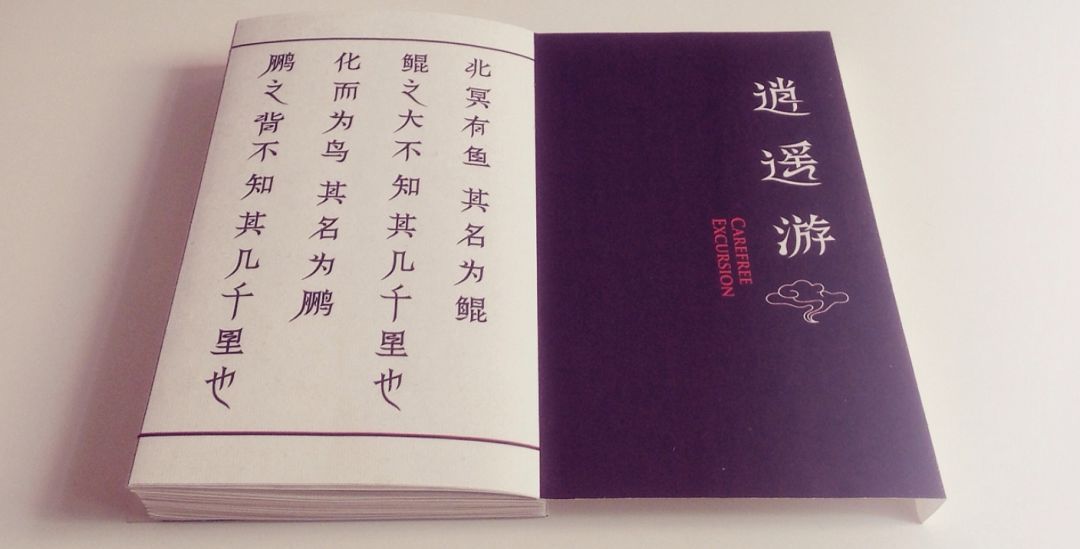 逍遥游
CAREFREE
EXCURSION
北冥有鱼 其名为鲲
鲲之大不知其几千里也
化而为鸟 其名为鹏
鹏之背不知其几千里也